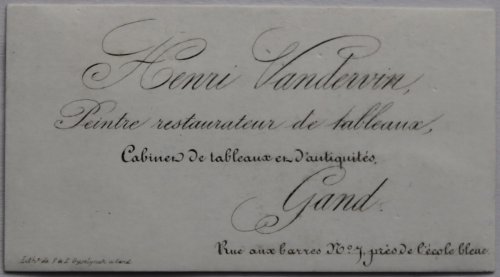 Henri Vandervin,
Peintre restaurateur de tableaux,
Cabinet de tableaux et d'antiquités,
Gand.
Rue aux barres No. 7, près de l'école bleue.
Lith. de à Gand